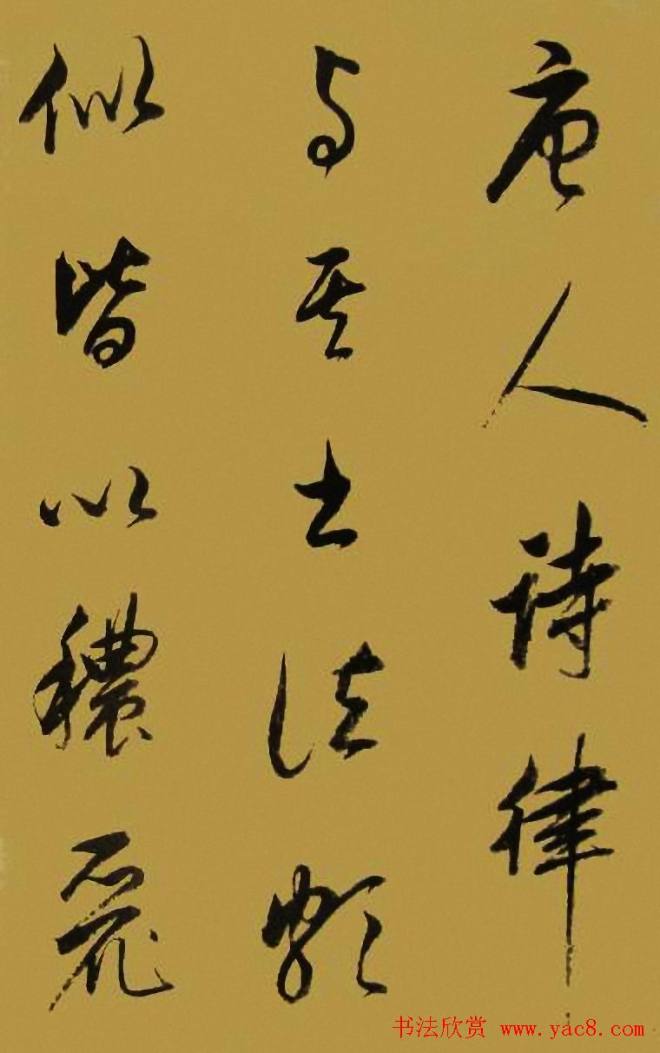 唐人詩律
与其書法頗
似皆以穠麗
书法欣赏 www.yac8.com